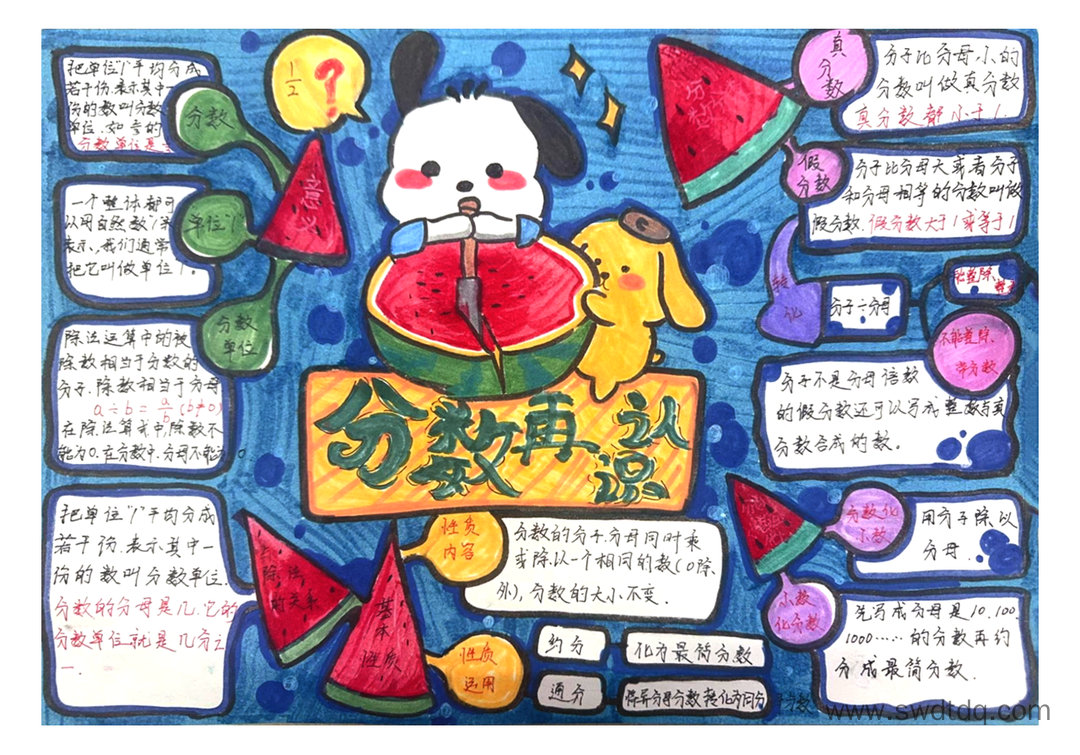 分数再认识
1/2 ?
意义
分数
把单位"1"平均分成
若干份.表示其中一
份的数叫分数
单位.如
分数单位是
单位"1"
一个整体都可
以用自然数"1"来
表示.我们通常
把它叫做单位1.
分数
单位
除法运算中的被
除数相当于分数的
分子.除数相当于分母
a÷b=a/b(b≠0)
在除法算式中.除数不
能为0.在分数中.分母不能为0
把单位"1"平均分成
若干份.表示其中一
份的数叫分数单位.
分数的分母是几.它的
分数单位就是几分之
一.
除法
的关系
基本
性质
性质
内容
分数的分子.分母同时乘
或除以一个相同的数(0除
外),分数的大小不变.
性质
运用
约分
化为最简分数
通分
将异分母分数转化为同分
母分数
分
真
分
数
分子比分母小的
分数叫做真分数
真分数都小于1.
假
分数
分子比分母大或者分子
和分母相等的分数叫做
假分数.假分数大于1或等于1
转
化
分子÷分母
能整除.
不能整除.
带分数
分子不是分母倍数
的假分数还可以写成整数与真
分数合成的数。
分数化
小数
用分子除以
分母.
小数
化分数
先写成分母是10.100.
1000……的分数再约
分成最简分数.
www.swdtdq.com